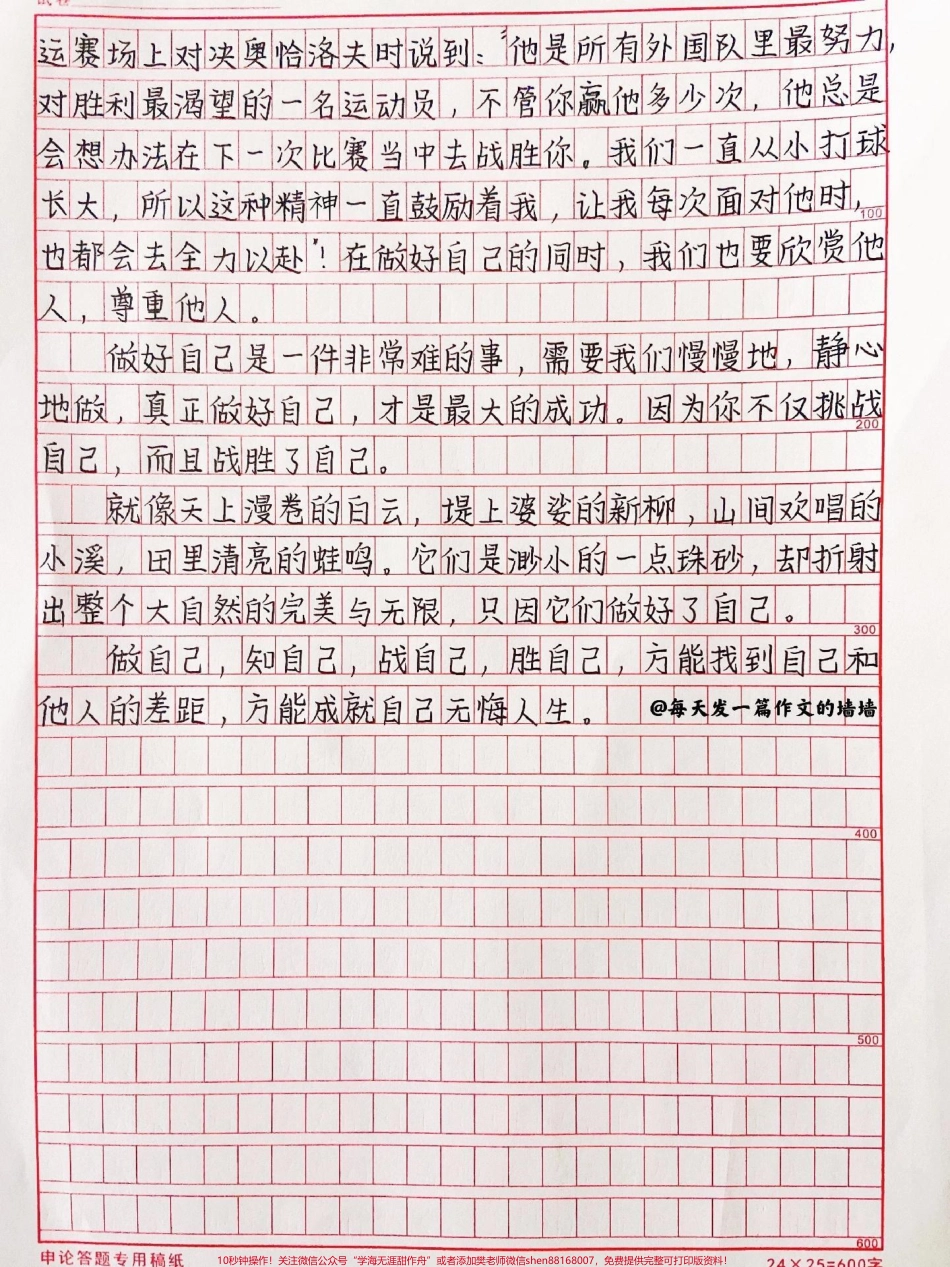 运赛场上对决奥恰洛夫时说到：“他是所有外国队里最努力，
对胜利最渴望的一名运动员，不管你赢他多少次，他总是
会想办法在下一次比赛当中去战胜你。我们一直从小打球
长大，所以这种精神一直鼓励着我，让我每次面对他时，
100
也都会去全力以赴”！在做好自己的同时，我们也要欣赏他
人，尊重他人。
做好自己是一件非常难的事，需要我们慢慢地，静心
地做，真正做好自己，才是最大的成功。因为你不仅挑战
200
自己，而且战胜了自己。
就像天上漫卷的白云，堤上婆娑的新柳，山间欢唱的
小溪，田里清亮的蛙鸣。它们是渺小的一点珠砂，却折射
出整个大自然的完美与无限，只因它们做好了自己。
300
做自己，知自己，战自己，胜自己，方能找到自己和
他人的差距，方能成就自己无悔人生。
@每天发一篇作文的墙墙
400
500
600
申论答题专用稿纸
10秒钟操作！关注微信公众号“学海无涯甜作舟”或者添加樊老师微信shen88168007，免费提供完整可打印版资料！
24×25=600字